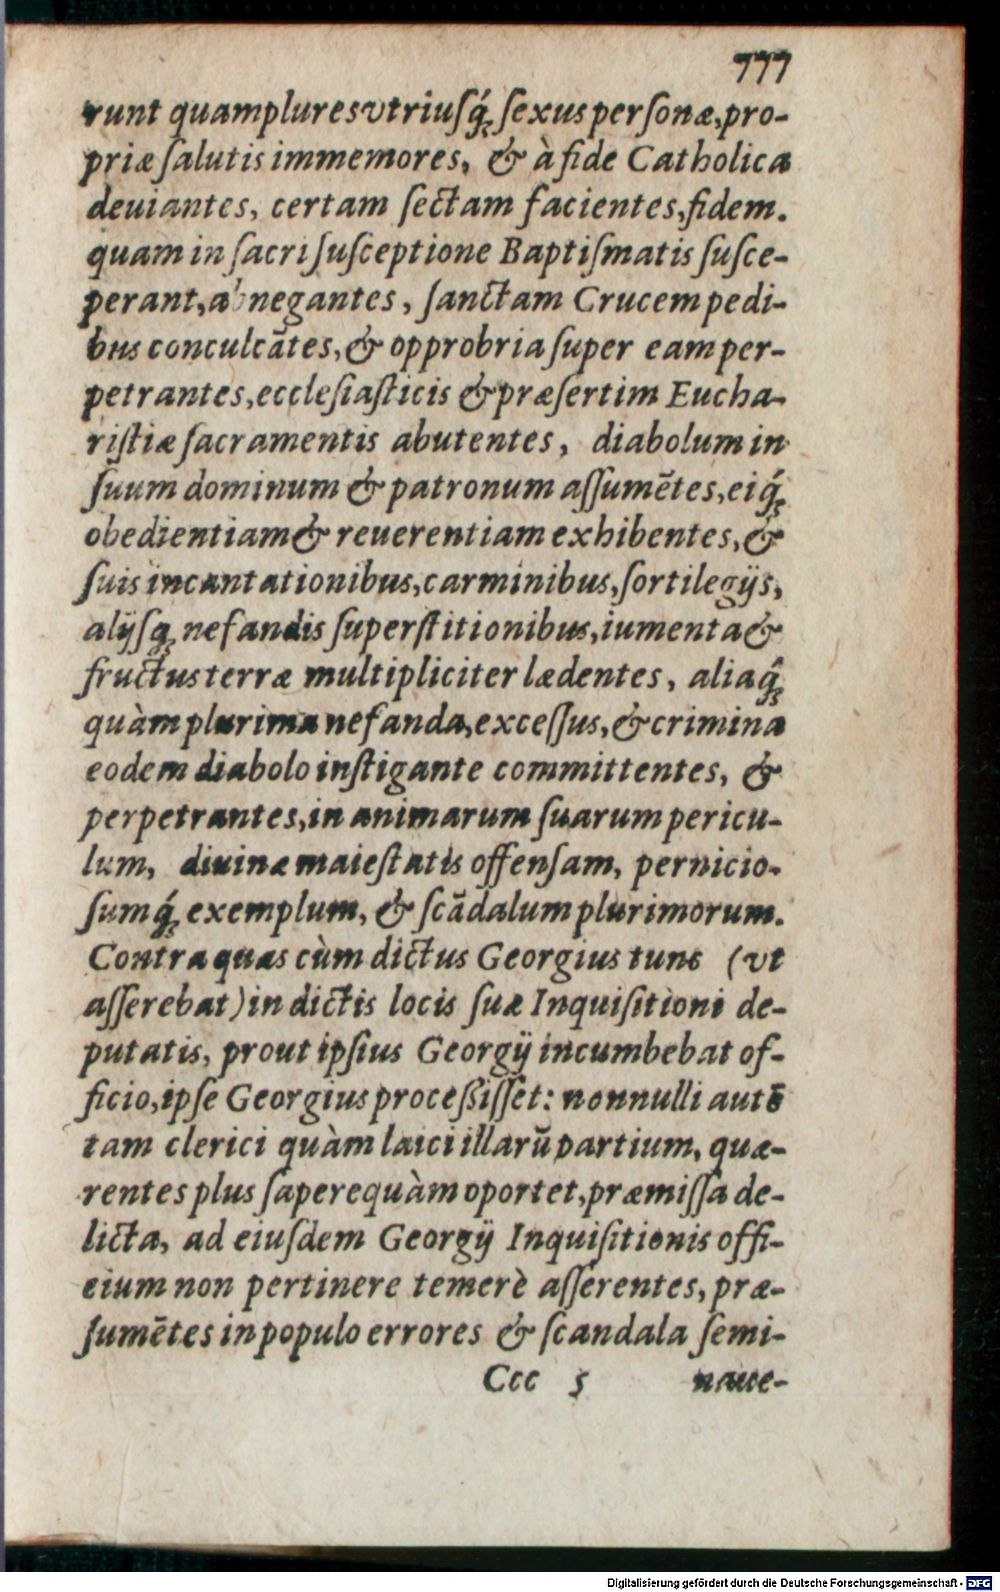 777
runt quamplures vtriusq́; sexus personæ, pro-
priæ salutis immemores, & à fide Catholica
deuiantes, certam sectam facientes, fidem.
quam in sacri susceptione Baptismatis susce-
perant, abnegantes, sanctam Crucem pedi-
bus conculcātes, & opprobria super eam per-
petrantes, ecclesiasticis & præsertim Eucha-
ristiæ sacramentis abutentes, diabolum in
suum dominum & patronum assumētes, eiq́;
obedientiam & reuerentiam exhibentes, &
suis incantationibus, carminibus, sortilegijs,
alijsq; nefandis superstitionibus, iumenta &
fructus terræ multipliciter lædentes, aliaq́;
quàm plurima nefanda, excessus, & crimina
eodem diabolo instigante committentes, &
perpetrantes, in animarum suarum pericu-
lum, diuinæ maiestatis offensam, pernicio-
sumq́; exemplum, & scādalum plurimorum.
Contra quas cùm dictus Georgius tunc (vt
asserebat) in dictis locis suæ Inquisitioni de-
putatis, prout ipsius Georgij incumbebat of-
ficio, ipse Georgius processisset: nonnulli autē
tam clerici quàm laici illarū partium, quæ-
rentes plus sapere quàm oportet, præmissa de-
licta, ad eiusdem Georgij Inquisitionis offi-
cium non pertinere temerè asserentes, præ-
sumētes in populo errores & scandala semi-
Ccc 5 naue-
Digitalisierung gefördert durch die Deutsche Forschungsgemeinschaft - DFG